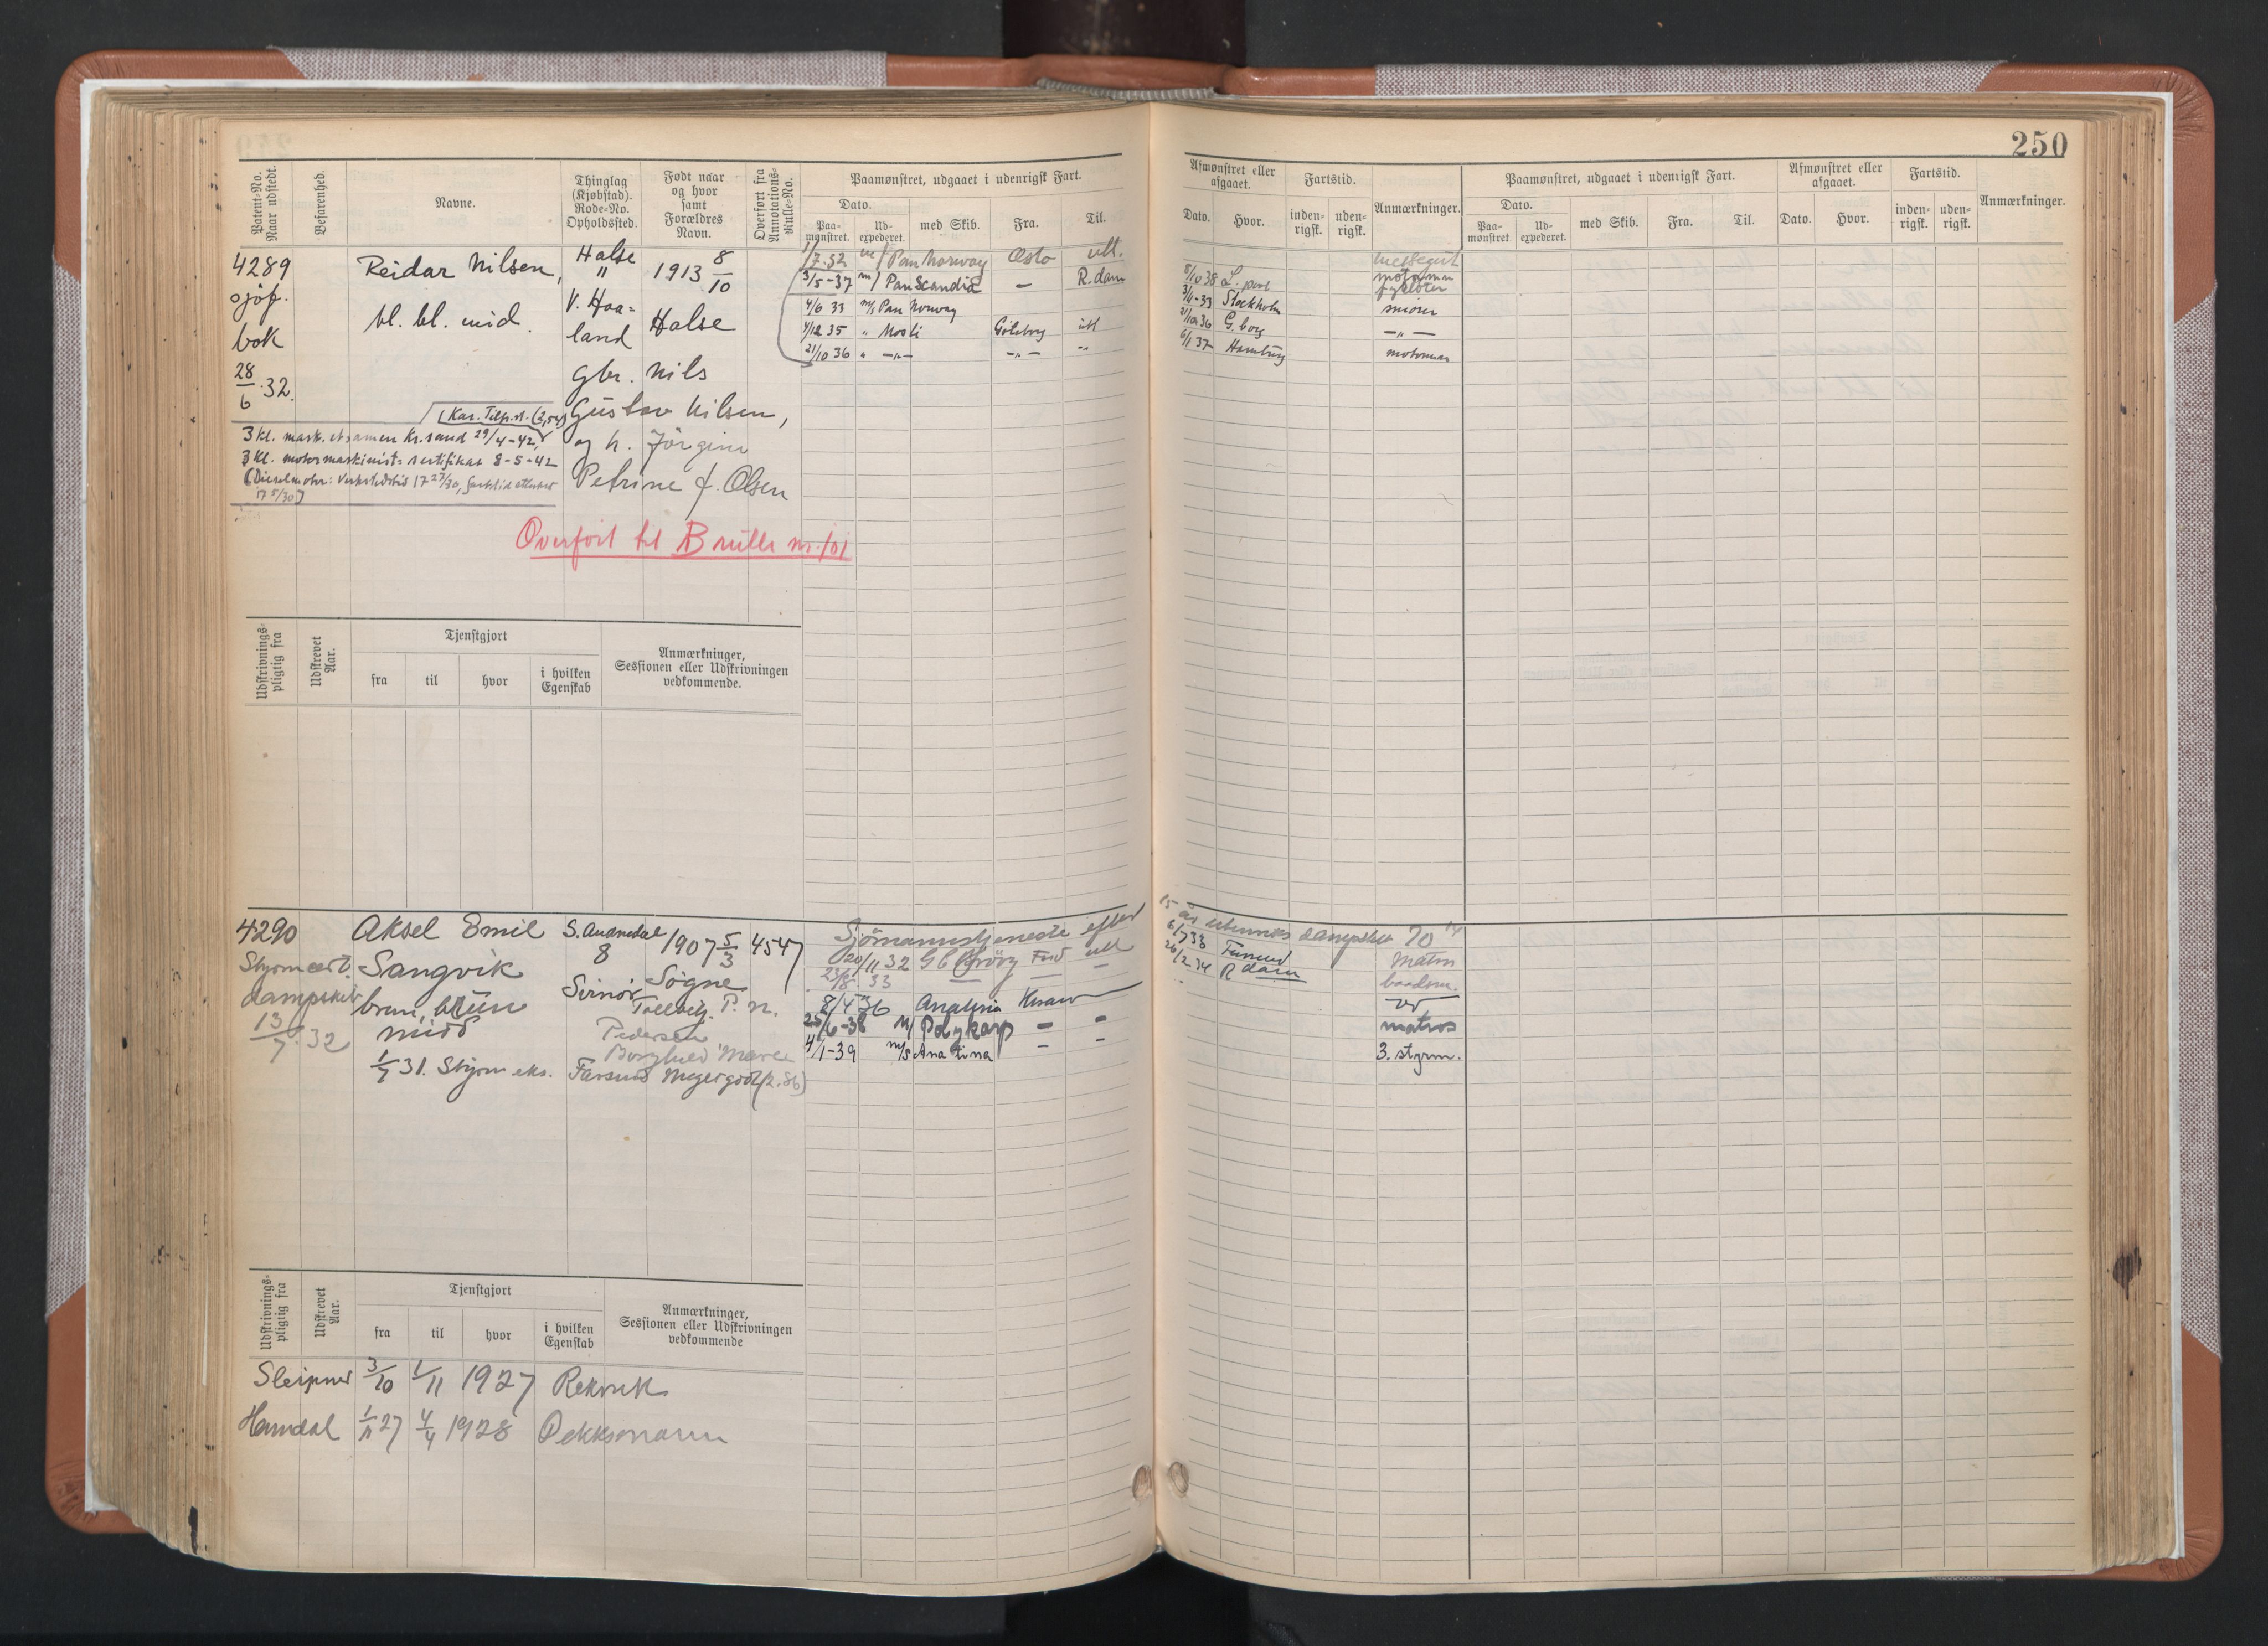 250
Patent-No. Naar udstedt.
Befarenhed.
Navne.
Thinglag (Kjøbstad). Rode-No. Opholdssted.
Født naar og hvor samt Forældres Navn.
Overført fra Annotations-Rulle-No.
Paamønstret, udgaaet i udenrigsk Fart.
Dato.
Paa-mønstret.
Ud-expederet.
med Skib.
Fra.
Til.
Afmønstret eller afgaaet.
Dato.
Hvor.
Fartstid.
inden-rigsk.
uden-rigsk.
Anmærkninger.
Paamønstret, udgaaet i udenrigsk Fart.
Dato.
Paa-mønstret
Ud-expederet.
med Skib.
Fra.
Til.
Afmønstret eller afgaaet.
Dato.
Hvor.
Fartstid.
inden-rigsk.
uden-rigsk.
Anmærkninger.
4289
sjøf.
bok
28/6 32.
Reidar Nilsen,
bl. bl. mid.
Halse
"
V. Haa=
land
1913 8/10
Halse
gbr. Nils
Gustav Nilsen,
og h. Jörgine
Petrine f. Olsen
3 kl. mask. eksamen Kr.sand 29/4-42
3 kl. motormaskinist= sertifikat 8-5-42
Overført til B rulle nr. 101
1/7-32 m/ Pan Norway Oslo utl.
3/5-37 m/ Pan Scandia — R.dam
4/6 33 m/s Pan Norway
4/12 35 " Mosli Göteborg utl
21/10 36 " —"— —"— "
messegut
8/10 38 motorman
3/4-33 Stockholm smører
21/10 36 G. borg —"—
6/1 37 Hamburg motorman
Udskrivnings-pligtig fra
Udskrevet Aar.
Tjenstgjort
fra
til
hvor
i hvilken Egenskab
Anmærkninger, Sessionen eller Udskrivningen vedkommende.
4290
Styrm cert.
dampskib
13/7 32
Aksel Emil
Sangvik
brun, brun
midd
1/7 31. Styrm eks.
S. Audnedal
8
Svinør
1907 5/3
Søgne
4547
P. N.
Pedersen
Farsund
Sjömannstjeneste efter
20/11 32 Fsd utl
23/8 33 — —
8/4 36 Anatina
25/6-38 M/ Polykarp — —
4/1-39 m/s Anatina — —
15 år
dampskib 70
6/7 33 Farsund matros
26/2 34 R dam baadsm.
matros
3. styrm.
Udskrivnings-pligtig fra
Udskrevet Aar.
Tjenstgjort
fra
til
hvor
i hvilken Egenskab
Anmærkninger, Sessionen eller Udskrivningen vedkommende
Sleipner 3/10 1/11 1927 Rekrut
1/11 27 4/4 1928 Dekksmann